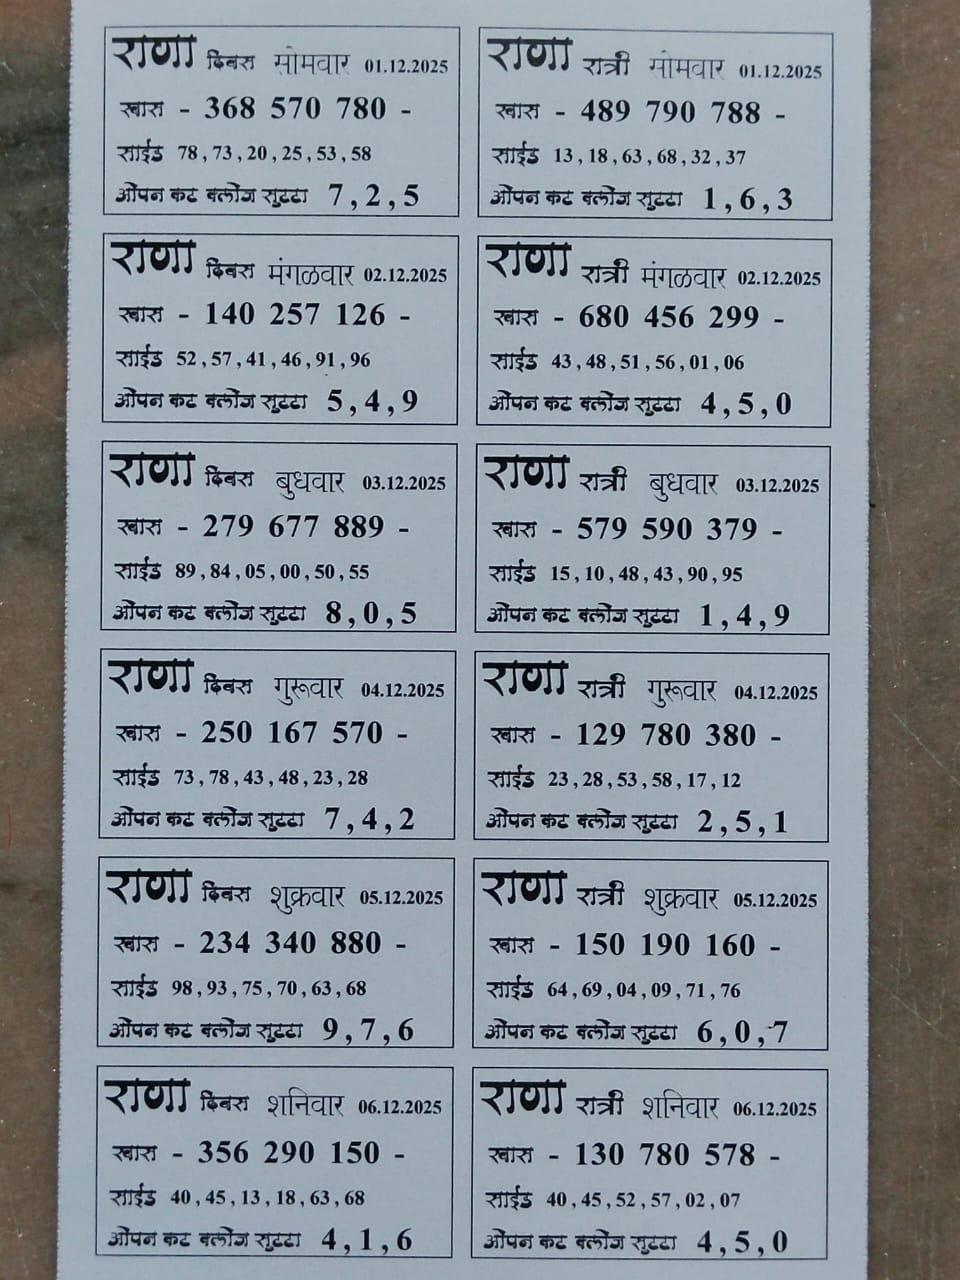 राणा दिवस सोमवार 01.12.2025
खास - 368 570 780 -
साईड 78 , 73 , 20 , 25 , 53 , 58
ओपन कट क्लोज सुटटा 7 , 2 , 5
राणा रात्री सोमवार 01.12.2025
खास - 489 790 788 -
साईड 13 , 18 , 63 , 68 , 32 , 37
ओपन कट क्लोज सुटटा 1 , 6 , 3
राणा दिवस मंगळवार 02.12.2025
खास - 140 257 126 -
साईड 52 , 57 , 41 , 46 , 91 , 96
ओपन कट क्लोज सुटटा 5 , 4 , 9
राणा रात्री मंगळवार 02.12.2025
खास - 680 456 299 -
साईड 43 , 48 , 51 , 56 , 01 , 06
ओपन कट क्लोज सुटटा 4 , 5 , 0
राणा दिवस बुधवार 03.12.2025
खास - 279 677 889 -
साईड 89 , 84 , 05 , 00 , 50 , 55
ओपन कट क्लोज सुटटा 8 , 0 , 5
राणा रात्री बुधवार 03.12.2025
खास - 579 590 379 -
साईड 15 , 10 , 48 , 43 , 90 , 95
ओपन कट क्लोज सुटटा 1 , 4 , 9
राणा दिवस गुरूवार 04.12.2025
खास - 250 167 570 -
साईड 73 , 78 , 43 , 48 , 23 , 28
ओपन कट क्लोज सुटटा 7 , 4 , 2
राणा रात्री गुरूवार 04.12.2025
खास - 129 780 380 -
साईड 23 , 28 , 53 , 58 , 17 , 12
ओपन कट क्लोज सुटटा 2 , 5 , 1
राणा दिवस शुक्रवार 05.12.2025
खास - 234 340 880 -
साईड 98 , 93 , 75 , 70 , 63 , 68
ओपन कट क्लोज सुटटा 9 , 7 , 6
राणा रात्री शुक्रवार 05.12.2025
खास - 150 190 160 -
साईड 64 , 69 , 04 , 09 , 71 , 76
ओपन कट क्लोज सुटटा 6 , 0 , 7
राणा दिवस शनिवार 06.12.2025
खास - 356 290 150 -
साईड 40 , 45 , 13 , 18 , 63 , 68
ओपन कट क्लोज सुटटा 4 , 1 , 6
राणा रात्री शनिवार 06.12.2025
खास - 130 780 578 -
साईड 40 , 45 , 52 , 57 , 02 , 07
ओपन कट क्लोज सुटटा 4 , 5 , 0